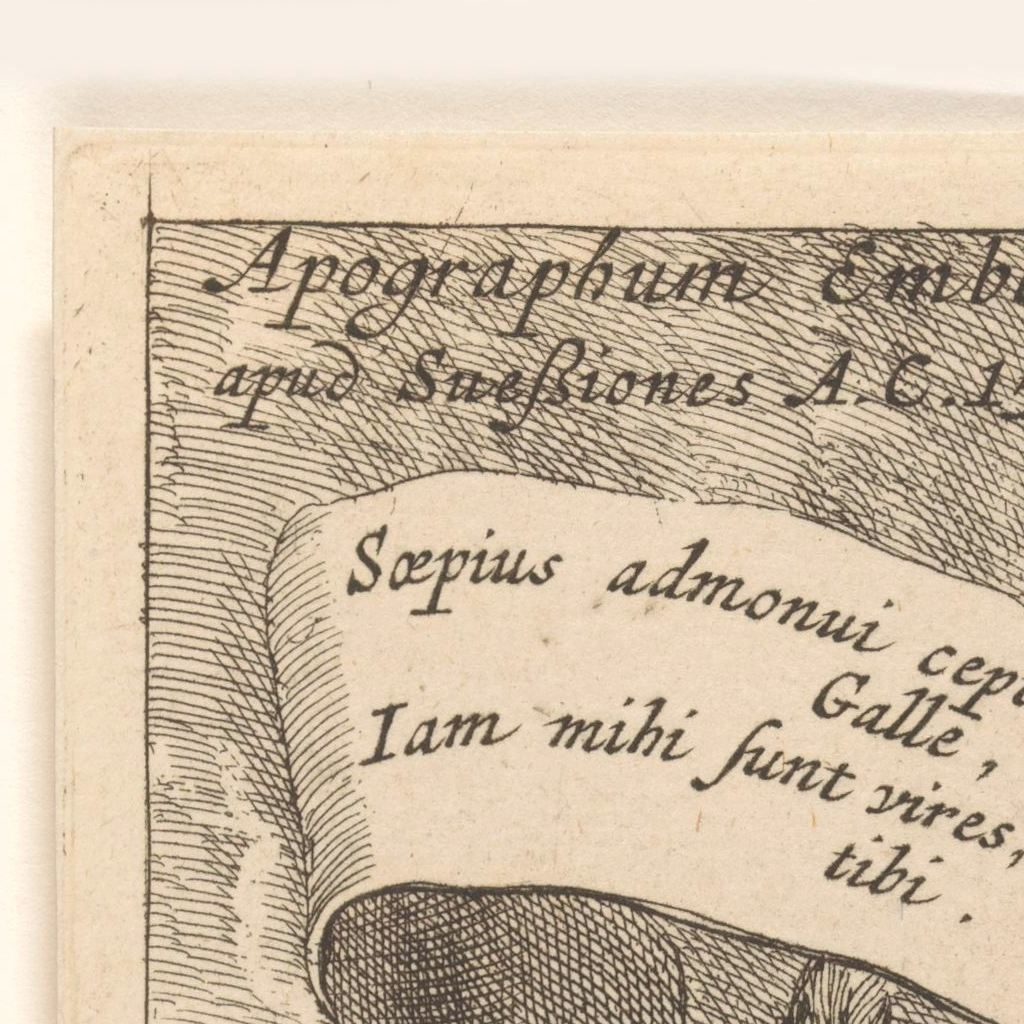 Apographum Emb
apud Sueßiones A.C.15
Sæpius admonui cepi
Galle,
Iam mihi ſunt vires,
tibi.